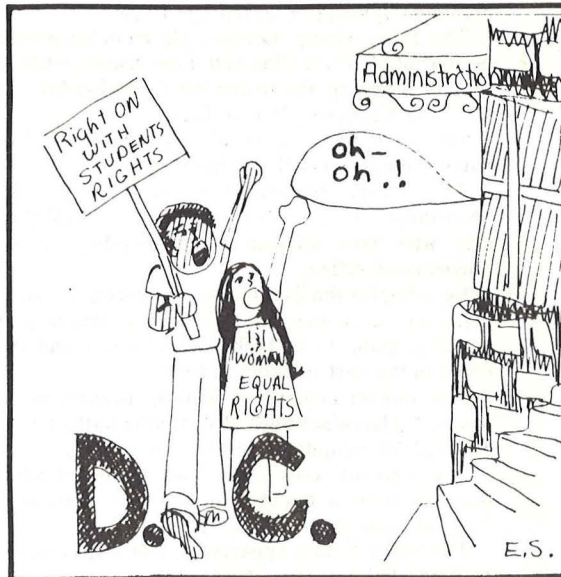 Right ON
WITH
STUDENTS
RIGHTS
Administratio
oh-
oh.!
WOMAN
EQUAL
RIGHTS
D.C.
E.S.